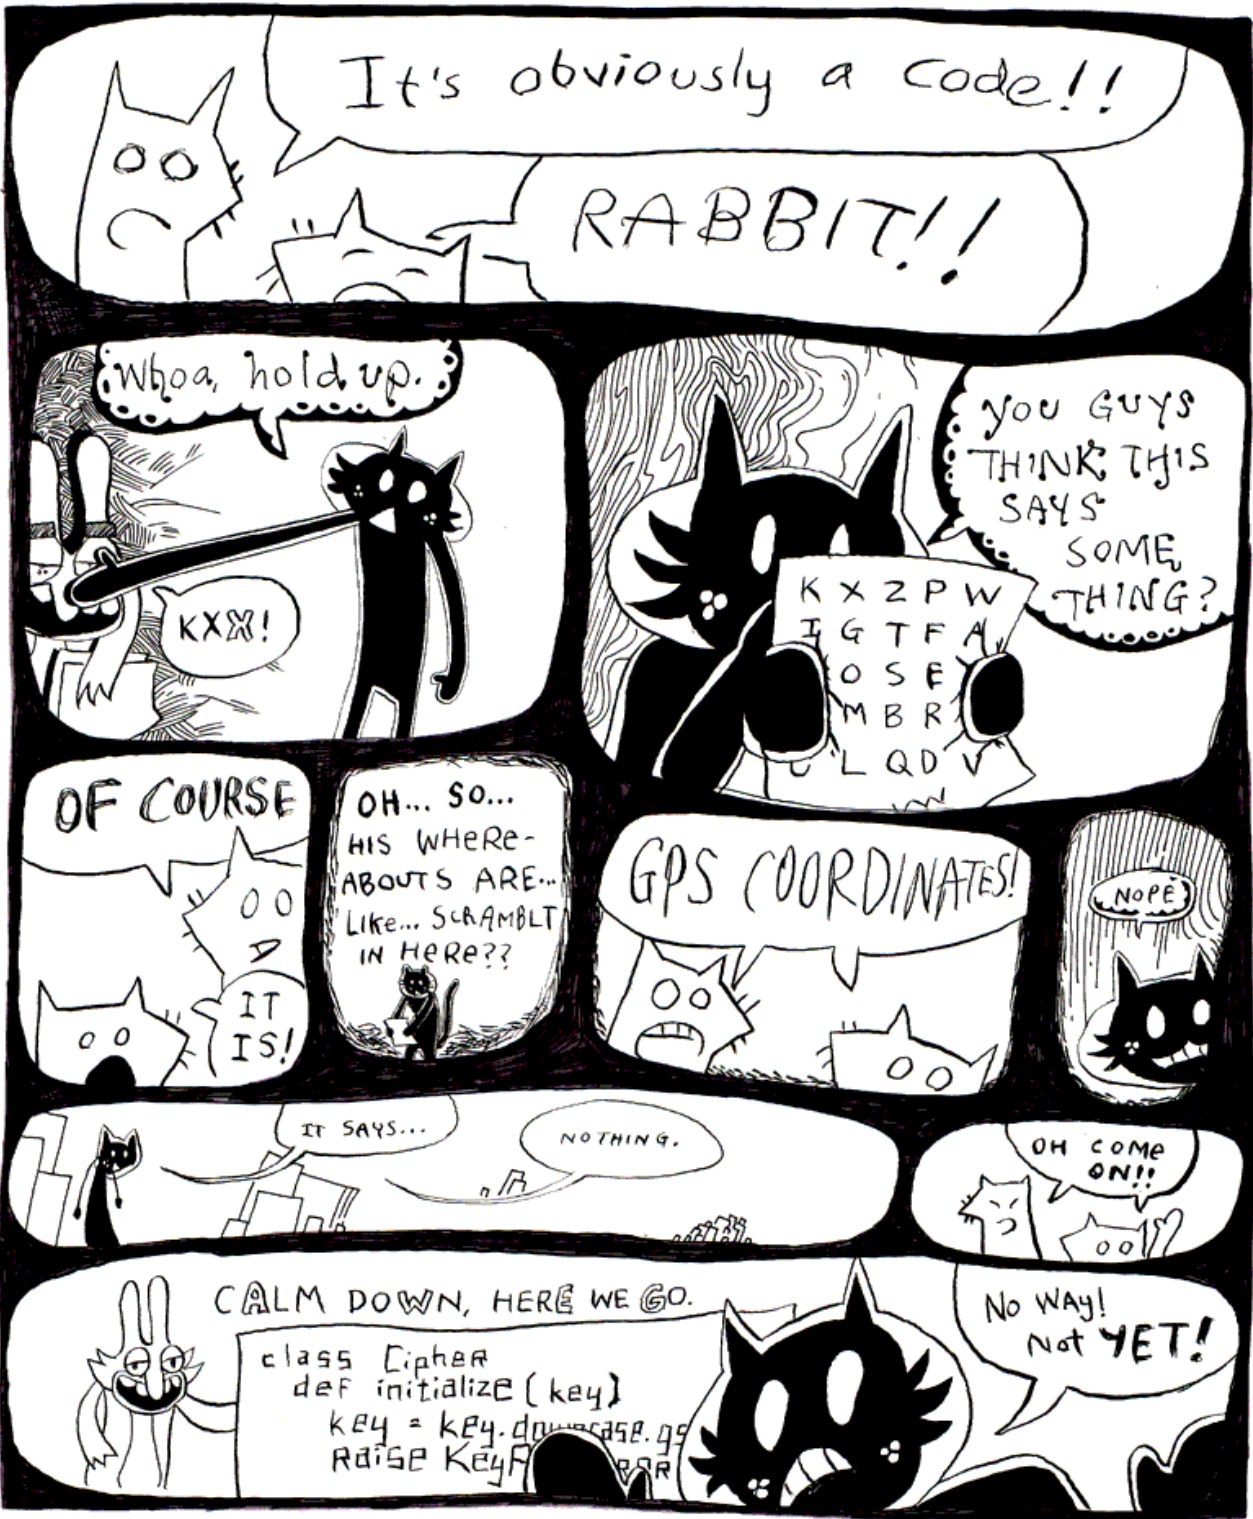 It's obviously a code!!
RABBIT!!
Whoa, hold up.
KXX!
YOU GUYS
THINK THIS
SAYS
SOME
THING?
K X Z P W
I G T F A
O S E
M B R
L Q D V
OF COURSE
IT
IS!
OH... SO...
HIS WHERE-
ABOUTS ARE...
LIKE... SCRAMBLT
IN HERE??
GPS COORDINATES!
NOPE
IT SAYS...
NOTHING.
OH COME
ON!!
CALM DOWN, HERE WE GO.
class Cipher
def initialize (key)
key = key.downcase.gs
Raise Key
No WAY!
Not YET!